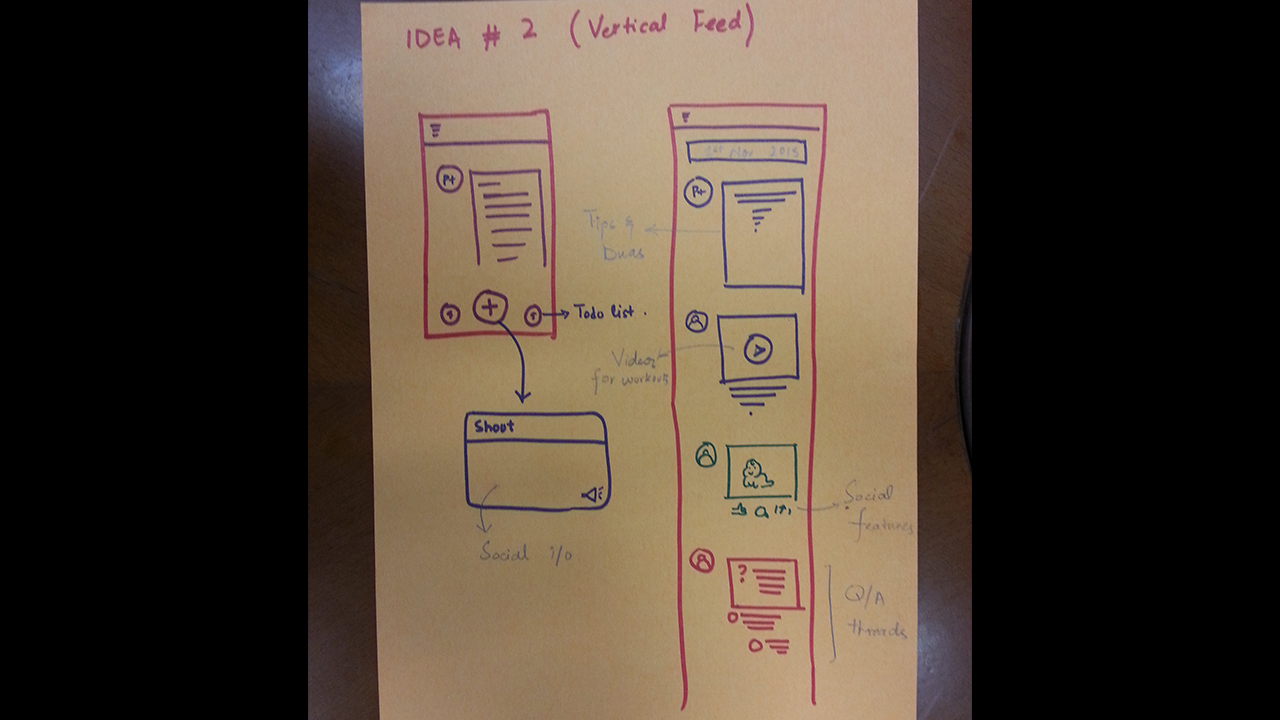 IDEA # 2 (Vertical Feed)
P+
Todo list.
Shout
Social i/o
1st Nov 2015
P+
Tips &
Duas
Videos
for workouts
Social
features
?
Q/A
threads